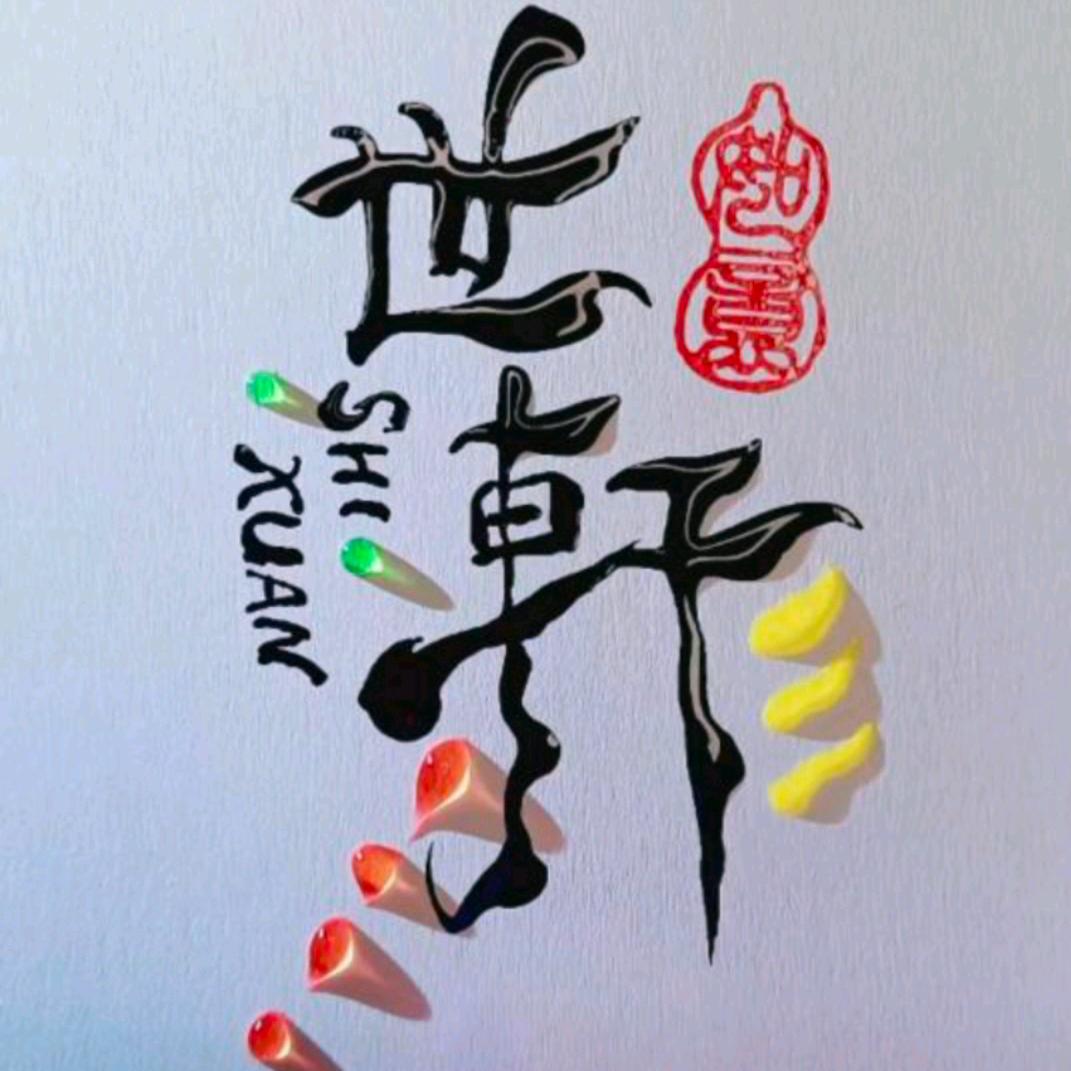 世軒
SHI
XUAN